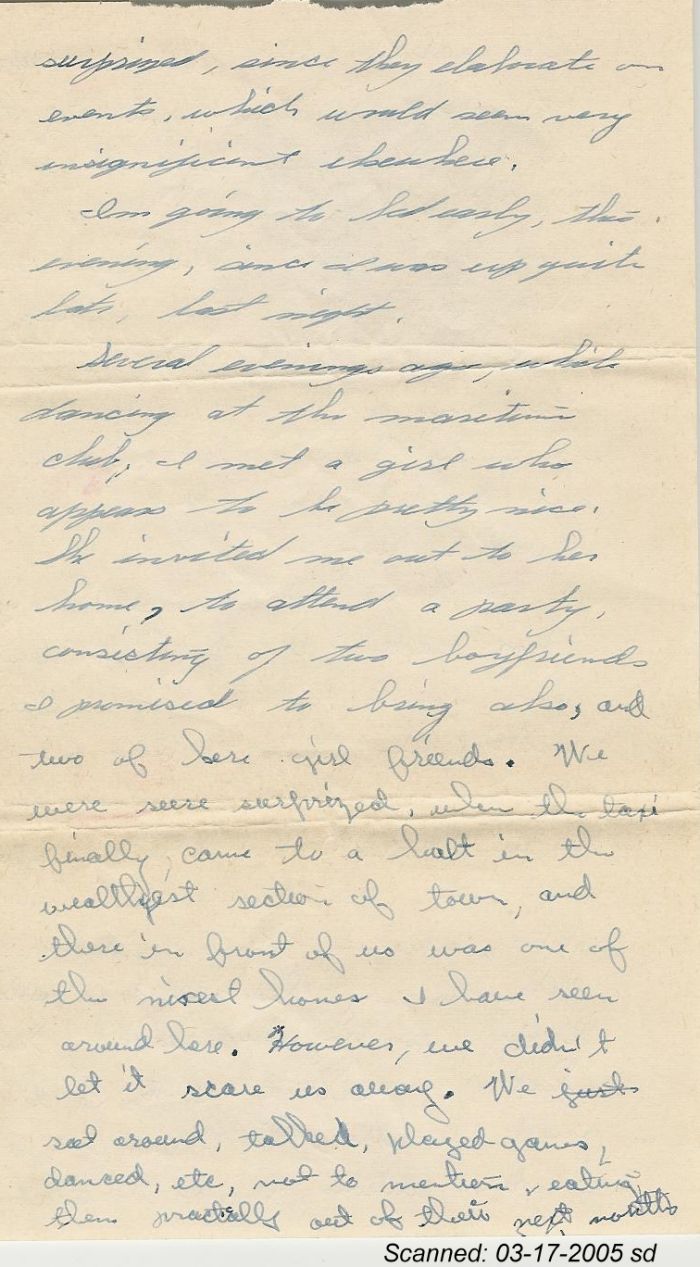 surprized, since they elaborate on
events, which would seem very
insignificient elsewhere.
I'm going to bed early, this
evening, since I was up quite
late, last night.
Several evenings ago, while
dancing at the maritime
club, I met a girl who
appears to be pretty nice.
She invited me out to her
home, to attend a party,
consisting of two boyfriends
I promised to bring also, and
two of here girl friends. We
were sure surprized, when the taxi
finally came to a halt in the
wealthyest section of town, and
there in front of us was one of
the nicest homes I have seen
around here. However, we didn't
let it scare us away. We just
sat around, talked, played games,
danced, etc, not to mention, eating
them practally out of their next months
Scanned: 03-17-2005 sd